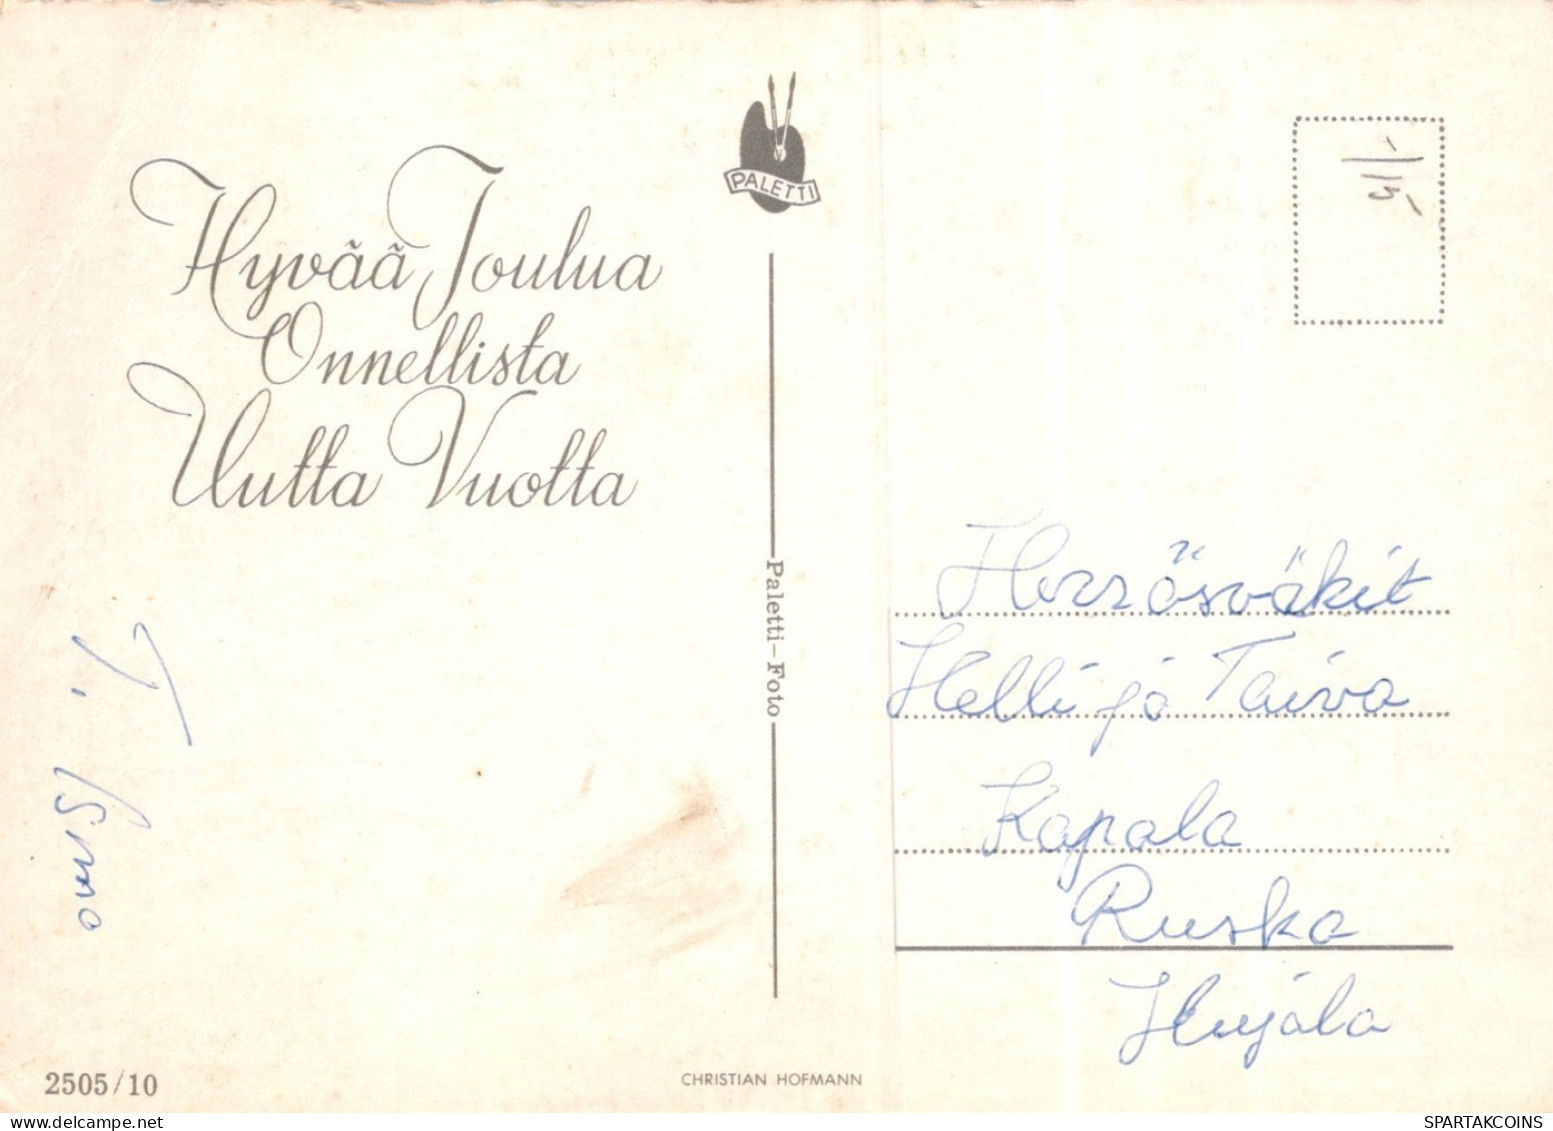 Hyvää Joulua
Onnellista
Uutta Vuotta
T. Ismo
2505/10
PALETTI
Paletti-Foto
CHRISTIAN HOFMANN
Helli ja Taiva
Kapala
Rusko
Hujala
SPARTAKCOINS